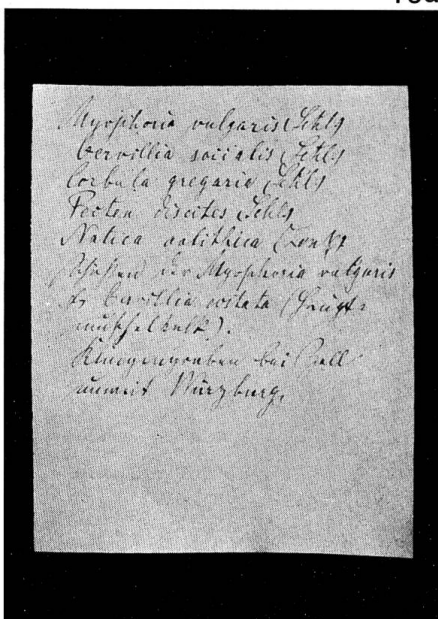 Myophoria vulgaris Schlg
Gervillia socialis Schlg
Corbula gregaria Schlg
Pecten discites Schlg
Natica oolithica Zenk
Schichten der Myophoria vulgaris
& Gervillia costata (Haupt=
muschelkalk).
bei Zell
unweit Würzburg.